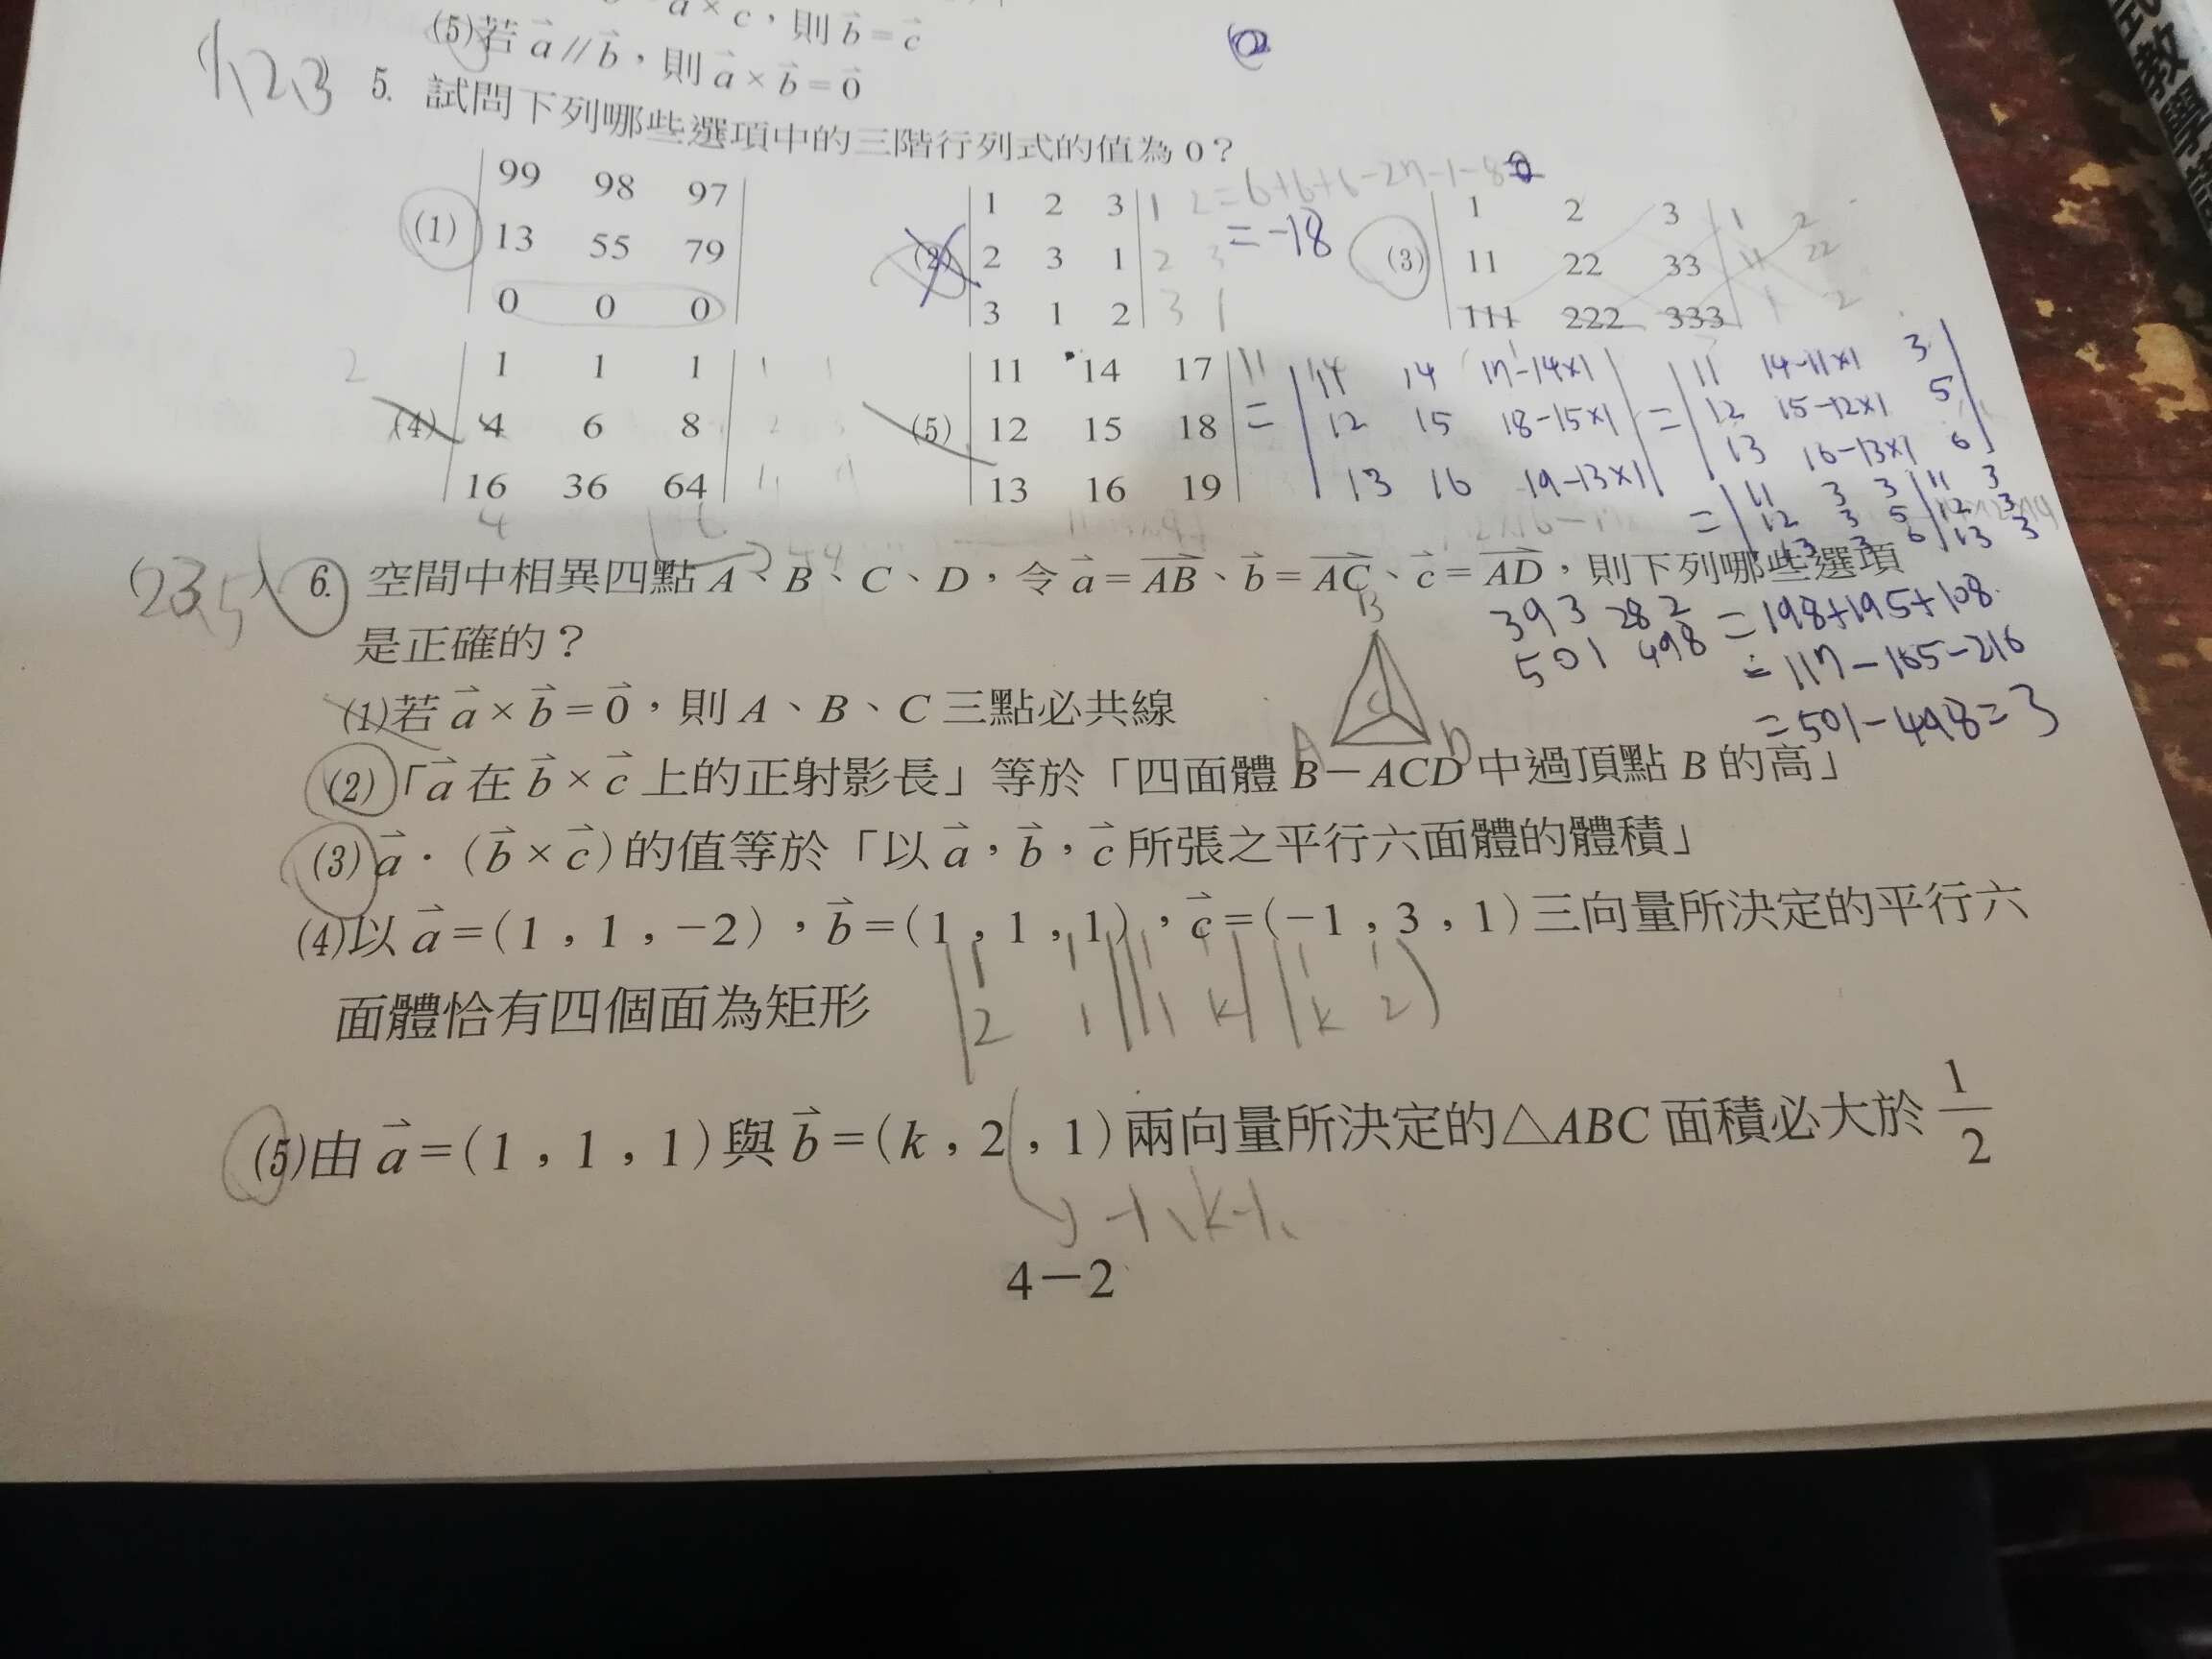 a × c，則 b = c
(5)若 a // b，則 a × b = 0
1,2,3 5. 試問下列哪些選項中的三階行列式的值為 0？
(1) | 99 98 97 |
| 13 55 79 |
| 0 0 0 |
(2) | 1 2 3 | 1 2 = 6+6+6-27-1-8
| 2 3 1 | 2 3 = -18
| 3 1 2 | 3 1
(3) | 1 2 3 | 1 2
| 11 22 33 | 11 22
| 111 222 333 | 1 2
(4) | 1 1 1 |
| 4 6 8 |
| 16 36 64 |
(5) | 11 14 17 |
| 12 15 18 |
| 13 16 19 |
= | 11 14 17-14×1 |
| 12 15 18-15×1 |
| 13 16 19-13×1 |
= | 11 14-11×1 3 |
| 12 15-12×1 5 |
| 13 16-13×1 6 |
= | 11 3 3 | 11 3
| 12 3 5 | 12 3
| 13 3 6 | 13 3
393 282 = 198+195+108
501 498 = 117-165-216
= 501-498=3
(2,3,5) 6. 空間中相異四點 A、B、C、D，令 a = AB、b = AC、c = AD，則下列哪些選項
是正確的？
(1)若 a × b = 0，則 A、B、C 三點必共線
B
C
A D
(2)「a 在 b × c 上的正射影長」等於「四面體 B－ACD 中過頂點 B 的高」
(3) a ·（b × c）的值等於「以 a，b，c 所張之平行六面體的體積」
(4)以 a =（1，1，-2），b =（1，1，1），c =（-1，3，1）三向量所決定的平行六
面體恰有四個面為矩形
| 1 1 | | 1 1 | | 1 1 |
| 2 1 | | 1 k | | k 2 |
(5)由 a =（1，1，1）與 b =（k，2，1）兩向量所決定的△ABC 面積必大於 1/2
-1、k-1、
4－2